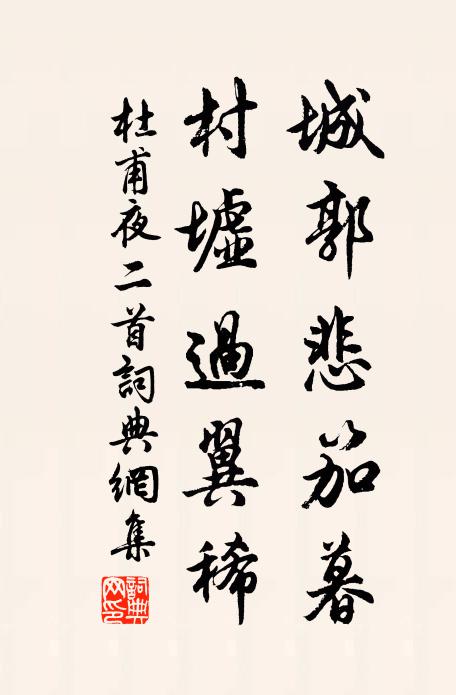 城郭悲笳暮
村墟過翼稀
杜甫夜二首詞典網集
詞典网印